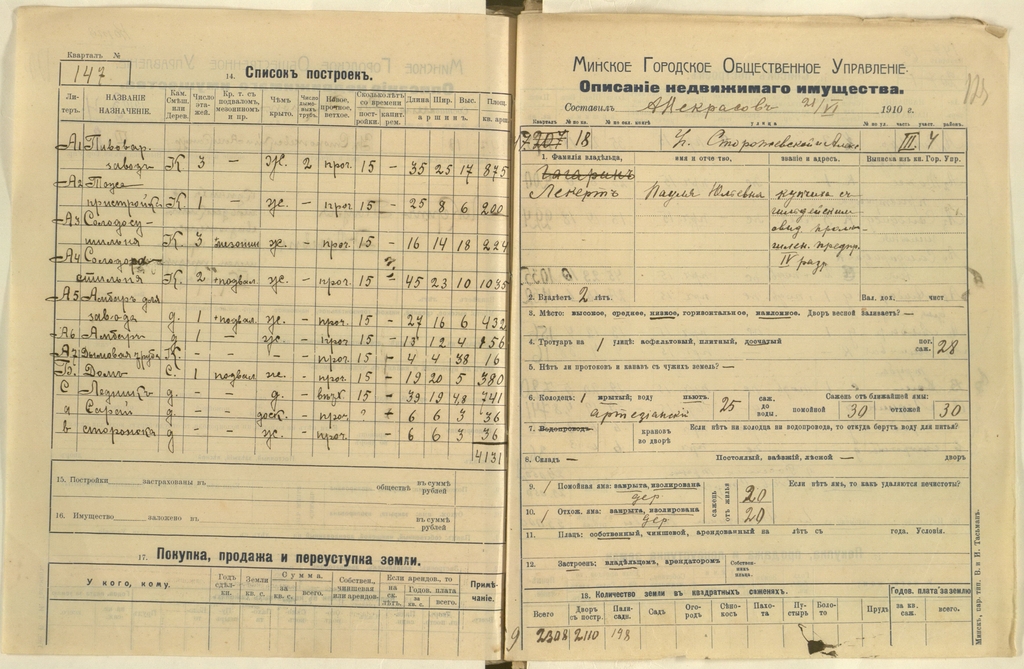 Кварталъ №
147.
14. Списокъ построекъ.
Литеръ. НАЗВАНІЕ НАЗНАЧЕНІЕ. Кам. Смѣш. или Дерев. Число этаж. Кр. т. съ подваломъ, мезониномъ и пр. Чѣмъ крыто. Число дымовых. трубъ. Новое, прочное, ветхое. Сколько лѣтъ со времени постройки. капит. рем. Длина Шир. Выс. аршинъ. Площ. кв. арш.
А1 Пивовар. заводъ К 3 — Ж. 2 проч. 15 — 35 25 17 875
А2 Тоже пристройка К. 1 — ж. — проч 15 — 25 8 6 200
А3 Солодосушильня К. 3 ж. — проч. 15 — 16 14 18 224
А4 Солодорастильня К. 2 +подвал ж. — проч. 15 — 45 23 10 1035
А5 Амбаръ для завода д. 1 +подвал. ж. — проч. 15 — 27 16 6 432
А6 Амбаръ д 1 — ж. — проч 15 — 13 12 4 156
А7 Дымовая труба К. — — — — проч. 15 — 4 4 38 16
В. Домъ С. 1 подвал ж. — проч. 15 — 19 20 5 380
С Ледникъ д. — — д. — 15 — 39 19 4,8 741
а Сарай д. — — доск. — проч. 6 6 3 36
в сторожка д — — ж. — проч. — 6 6 3 36
4131
15. Постройки застрахованы въ обществѣ въ суммѣ рублей
16. Имущество заложено въ въ суммѣ рублей
17. Покупка, продажа и переуступка земли.
У кого, кому. Годъ сдѣлки. Земли кв. с. Сумма. за кв. с. всего. Собствен., чиншевая или арендов. Если арендов., то на ск. лѣтъ. Годов. плата за кв. с. всего. Примѣчаніе.
Минское Городское Общественное Управленіе.
Описаніе недвижимаго имущества.
Составилъ А Некрасовъ 21/VI 1910 г.
125
Кварталъ № по кв. № по нал. книгѣ улица № по ул. часть участ. район.
207 18 Н. Сторожевской и III 4
1. Фамилія владѣльца, имя и отчество, званіе и адресъ. Выписка изъ кн. Гор. Упр.
Гагаринъ
Лекертъ Паула Юльевна купчиха
IV разр
2. Владѣетъ 2 лѣтъ. Вал. дох. чист
3. Мѣсто: высокое, среднее, низкое, горизонтальное, наклонное. Дворъ весной заливаетъ? —
4. Тротуаръ на 1 улицѣ: асфальтовый, плитный, досчатый пог. саж. 28
5. Нѣтъ ли протоковъ и канавъ съ чужихъ земель? —
6. Колодецъ: 1 крытый; воду пьютъ. 25 саж. до воды. Саженъ отъ ближайшей ямы: помойной 30 отхожей 30
артезіанскій
7. Водопроводъ крановъ во дворѣ Если нѣтъ ни колодца ни водопровода, то откуда берутъ воду для питья?
8. Складъ — Постоялый, заѣзжій, лѣсной — дворъ
9. 1 Помойная яма: закрыта, изолирована саженъ отъ жилья 20 Если нѣтъ ямъ, то какъ удаляются нечистоты?
дер
10. 1 Отхож. яма: закрыта, изолирована 20
дер
11. Плацъ: собственный, чиншевой, арендованный на лѣтъ съ года. Условія.
12. Застроенъ: владѣльцемъ, арендаторомъ Собственник. плаца.
18. Количество земли въ квадратныхъ саженяхъ. Годов. плата за землю
Всего Дворъ съ постр. Палисадн. Садъ Огородъ Сѣнокосъ Пахота Пустырь Болото Прудъ за кв. саж. всего.
2308 2110 198
9
Минскъ, пар. тип. В. и Н. Тасьманъ.